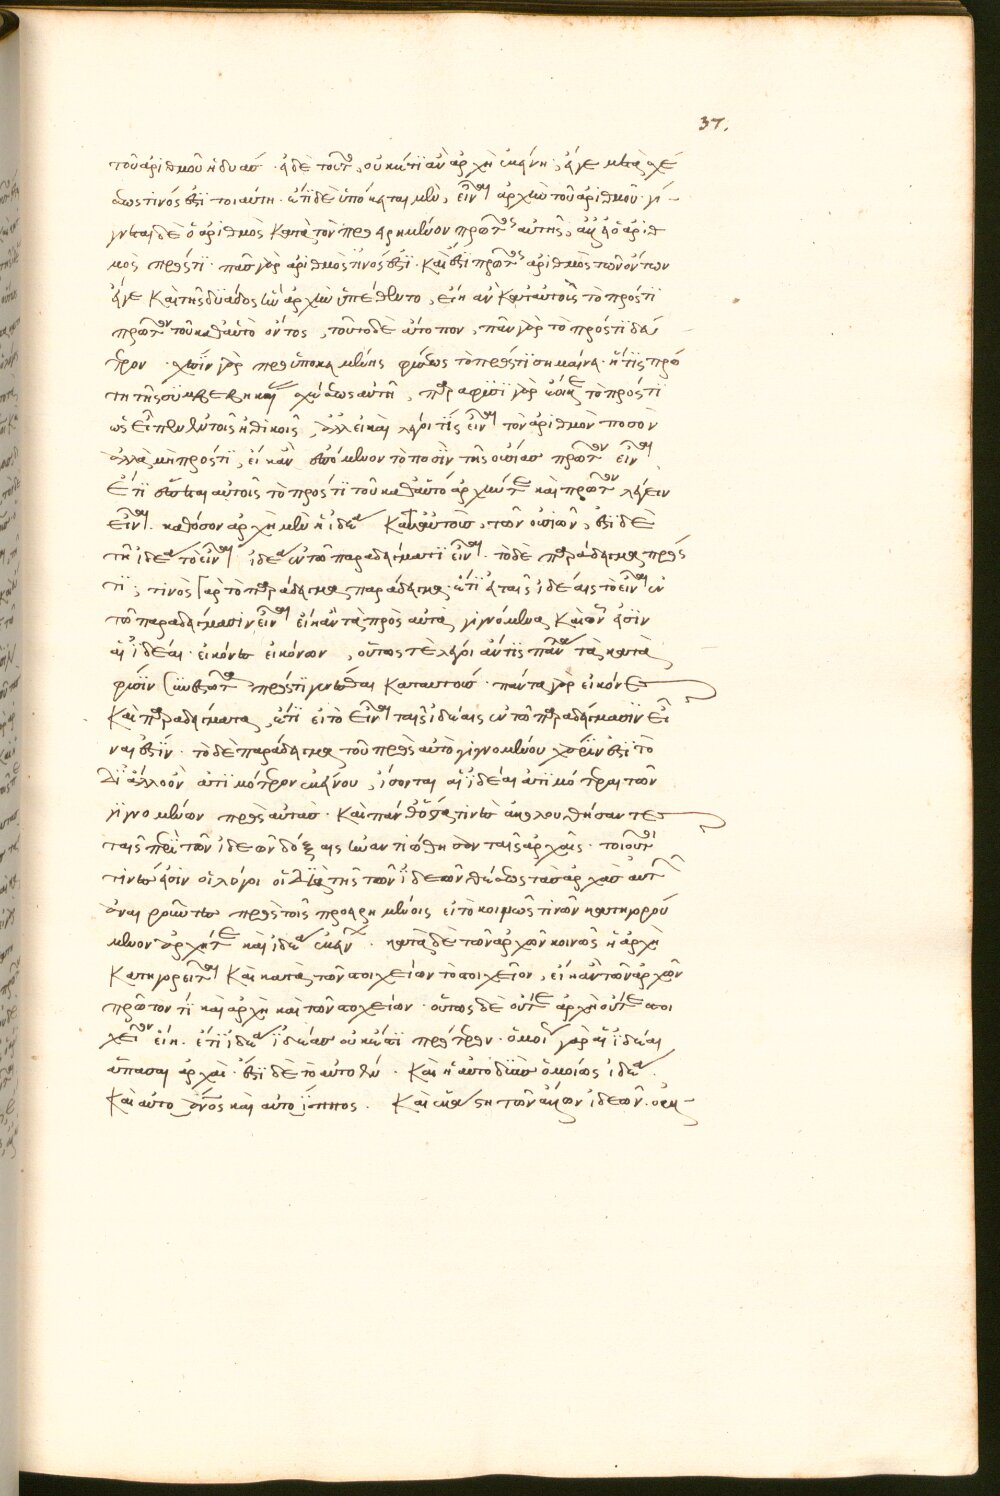 37.
τοῦ ἀριθμοῦ ἡ δυάσ. εἰ δὲ τοῦτο, οὐκέτι ἂν ἀρχὴ ἐκείνη, εἴγε μετὰ σχέ
σεως τινός ἐστι τοιαύτη. ἔτι δὲ ὑπόκειται μὲν, εἶναι ἀρχὴν τοῦ ἀριθμοῦ. γί-
γνεται δὲ ὁ ἀριθμὸς κατὰ τὸν προειρημένον πρῶτος αὐτῆς, ἀλλ' εἰ ὁ ἀριθ
μὸς πρός τι. πᾶς γὰρ ἀριθμὸς τινός ἐστι. καὶ ἔστι πρῶτος ἀριθμὸς τῶν ὄντων
εἴγε καὶ τῆς δυάδος ἣν ἀρχὴν ὑπέθεντο, εἴη ἂν κατ' αὐτοὺς τὸ πρός τι
πρῶτον τοῦ καθ' αὑτὸ ὄντος, τοῦτο δὲ ἄτοπον, πᾶν γὰρ τὸ πρός τι δεύ
τερον. σχέσιν γὰρ προϋποκειμένης φύσεως τὸ πρός τι σημαίνει. ἥτις πρώ
τη τῆς συμβεβηκυίας σχέσεως αὐτῇ, παραφυσι γὰρ ἔοικε τὸ πρός τι
ὡς εἶπεν ἐν τοῖς ἠθικοῖς, ἀλλ' εἰ καὶ λέγοι τίς εἶναι τὸν ἀριθμὸν ποσὸν
ἀλλὰ μὴ πρός τι, εἴη ἂν ἑπόμενον τὸ ποσὸν τῆς οὐσίας πρῶτον εἶναι
ἔτι ἕπεται αὐτοῖς τὸ πρός τι τοῦ καθ' αὑτὸ ἀρχήν τε καὶ πρῶτον λέγειν
εἶναι. καθόσον ἀρχὴ μὲν ἡ ἰδέα κατ' αὐτοὺς, τῶν οὐσιῶν, ἔστι δὲ
τῇ ἰδέᾳ τὸ εἶναι ἰδέᾳ ἐν τῷ παραδείγματι εἶναι. τὸ δὲ παράδειγμα πρός
τι, τινὸς γὰρ τὸ παράδειγμα παράδειγμα. ἔτι εἰ ταῖς ἰδέαις τὸ εἶναι ἐν
τῷ παραδείγμασιν εἶναι εἴη ἂν τὰ πρὸς αὐτὰ γιγνόμενα καὶ ὧν εἰσὶν
αἱ ἰδέαι. εἰκόνες εἰκόνων, οὕτως τε λέγοι ἄν τις πάντα τὰ κατὰ
φύσιν συνεστῶτα πρός τι γενέσθαι κατ' αὐτοὺς. πάντα γὰρ εἰκόνες
καὶ παραδείγματα, ἔτι εἰ τὸ εἶναι ταῖς ἰδέαις ἐν τῷ παραδείγμασιν εἶ
ναι ἔστιν. τὸ δὲ παράδειγμα τοῦ πρὸς αὐτὸ γιγνομένου χάριν ἐστὶ τὸ
δι' ἄλλο ὂν ἀτιμότερον ἐκείνου, ἔσονται αἱ ἰδέαι ἀτιμότεραι τῶν
γιγνομένων πρὸς αὐτάς. καὶ πάνθ' ὅσα τινὲς ἀκολουθήσαντες
ταῖς περὶ τῶν ἰδεῶν δόξαις ἠναντιώθησαν ταῖς ἀρχαῖς. τοιοῦτοί
τινές εἰσιν οἱ λόγοι οἳ διὰ τῆς τῶν ἰδεῶν θέσεως τὰς ἀρχὰς αὐτῶν
ἀναιροῦντες πρὸς τοῖς προειρημένοις εἰ τὸ κοινῶς τινῶν κατηγορού
μενον ἀρχή τε καὶ ἰδέα ἐκείνων. κατὰ δὲ τῶν ἀρχῶν κοινῶς ἡ ἀρχὴ
κατηγορεῖται καὶ κατὰ τῶν στοιχείων τὸ στοιχεῖον, εἴη ἂν τῶν ἀρχῶν
πρῶτόν τι καὶ ἀρχὴ καὶ τῶν στοιχείων. οὕτως δὲ οὔτε ἀρχὴ οὔτε στοι
χεῖον εἴη. ἔτι ἰδέα ἰδέας οὐκ ἔστι προτέρα. ὁμοίως γὰρ αἱ ἰδέαι
ἅπασαι ἀρχαὶ. ἔστι δὲ τὸ αὐτοέν. καὶ ἡ αὐτοδυὰς ὁμοίως ἰδέα.
καὶ αὐτοάνθρωπος καὶ αὐτοίππος. καὶ ἑκάστη τῶν ἄλλων ἰδεῶν. οὐκ-